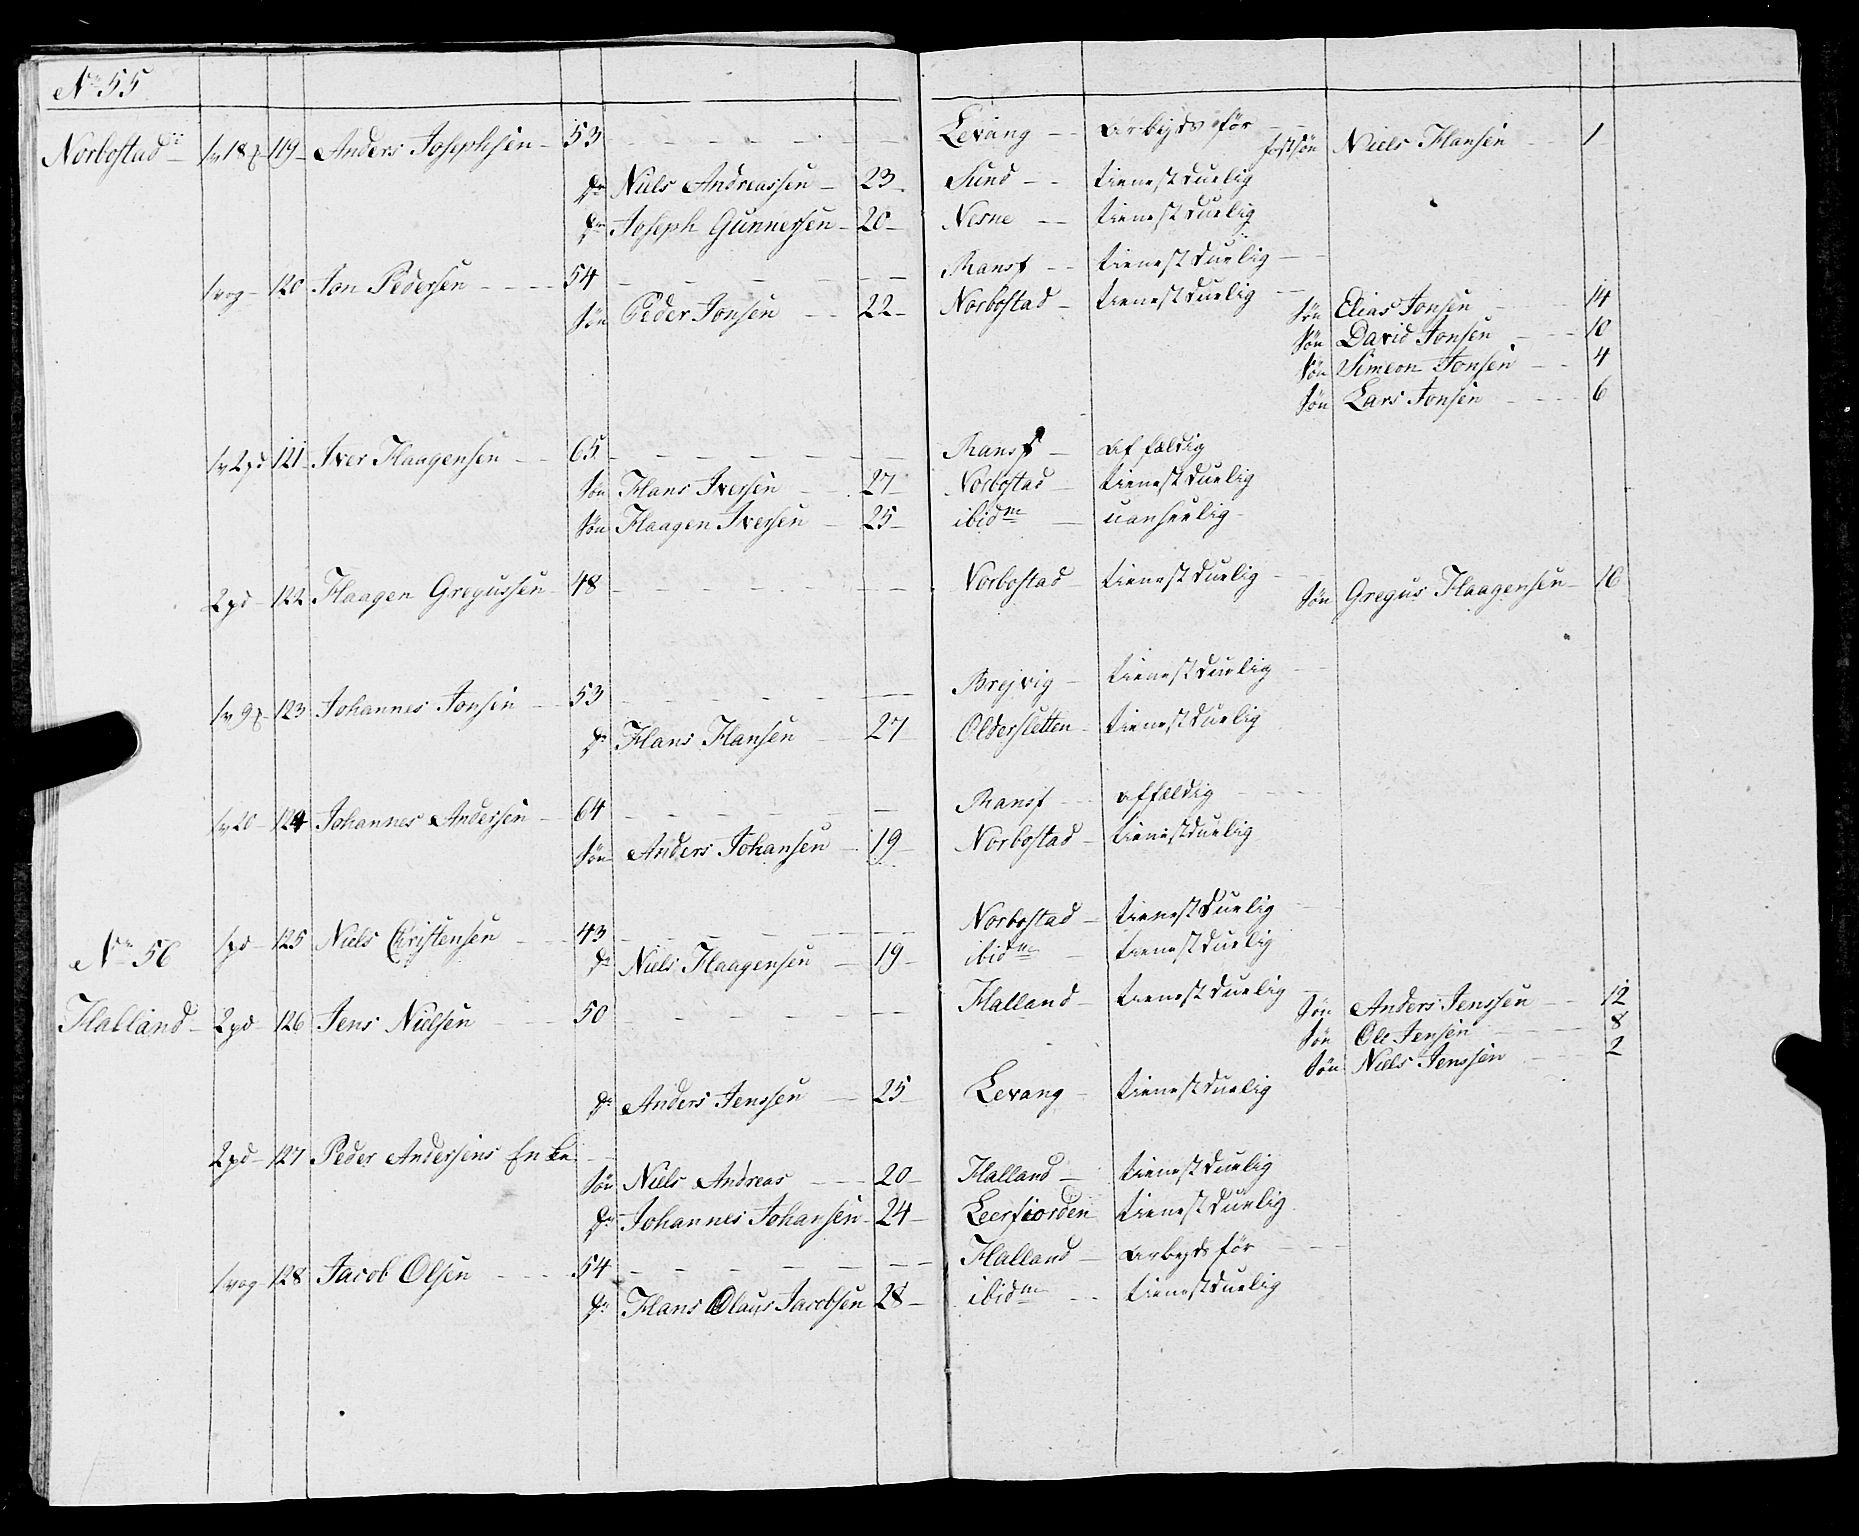 No 55
Norbostad 119 Anders Josephsen 53 Levang arbejdsfør fostsøn Niels Hansen 1
dr Niels Andreassen 23 Sund tienestduelig
dr Joseph Gunnersen 20 Nesne tienestduelig
1 vog 120 Jon Pedersen 54 Ransf tienestduelig
Søn Peder Jonsen 22 Norbostad tienestduelig Søn Elias Jonsen 14
Søn David Jonsen 10
Søn Simeon Jonsen 4
Søn Lars Jonsen 6
121 Iver Haagensen 65 Ransf affældig
Søn Hans Iversen 27 Norbostad tienestduelig
Søn Haagen Iversen 25 ibidm uanseelig
2 pd 122 Haagen Gregussen 48 Norbostad tienestduelig Søn Gregus Haagensen 16
123 Johannes Jonsen 53 Brejvig tienestduelig
dr Hans Hansen 27 Oldersletten tienestduelig
124 Johannes Andersen 64 Ransf affældig
Søn Anders Johansen 19 Norbostad tienestduelig
1 pd 125 Niels Christensen 43 Norbostad tienestduelig
No 56
dr Niels Haagensen 19 ibidm tienestduelig
Halland 2 pd 126 Jens Nielsen 50 Halland tienestduelig Søn Anders Jenssen 12
Søn Ole Jensen 8
Søn Niels Jenssen 2
dr Anders Jenssen 25 Levang tienestduelig
2 pd 127 Peder Andersens Enke
Søn Niels Andreas 20 Halland tienestduelig
dr Johannes Johansen 24 Leerfiorden tienestduelig
1 vog 128 Jacob Olsen 54 Halland arbejdsfør
dr Hans Olaus Jacobsen 28 ibidm tienestduelig